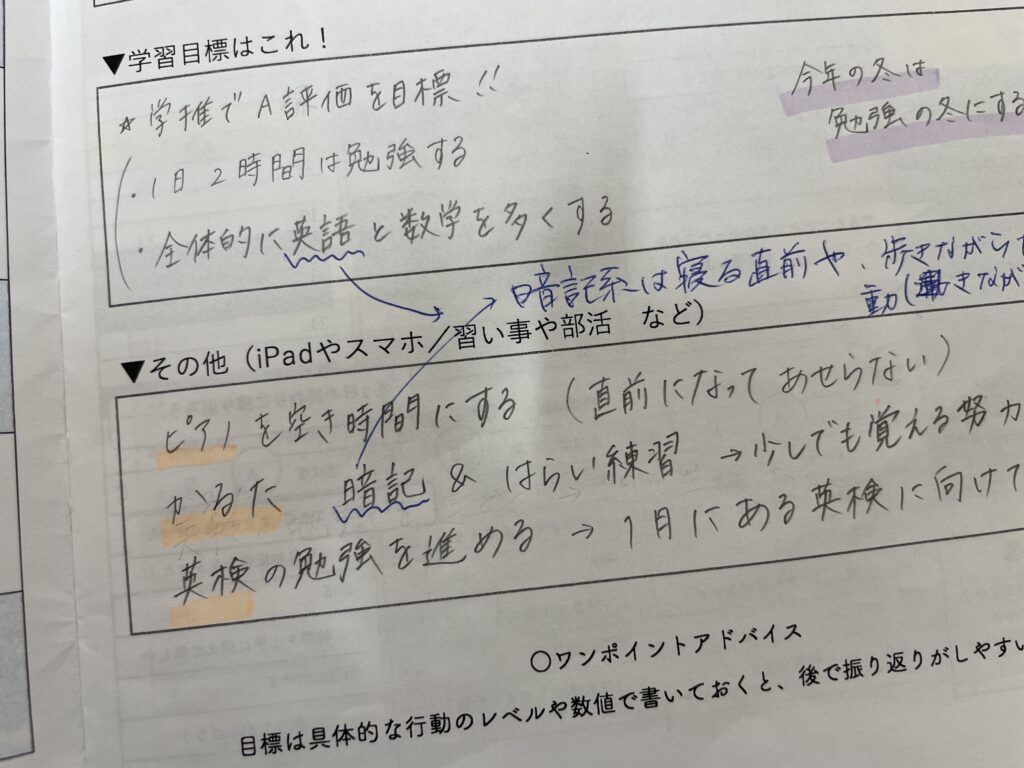 ▼学習目標はこれ！
☆学推でA評価を目標!!
今年の冬は
勉強の冬にする
・1日2時間は勉強する
・全体的に英語と数学を多くする
→暗記系は寝る直前や、歩きながら
動(きなが
▼その他（iPadやスマホ／習い事や部活　など）
ピアノを空き時間にする（直前になってあせらない）
かるた　暗記&はらい練習→少しでも覚える努力
英検の勉強を進める→1月にある英検に向けて
〇ワンポイントアドバイス
目標は具体的な行動のレベルや数値で書いておくと、後で振り返りがしやすい